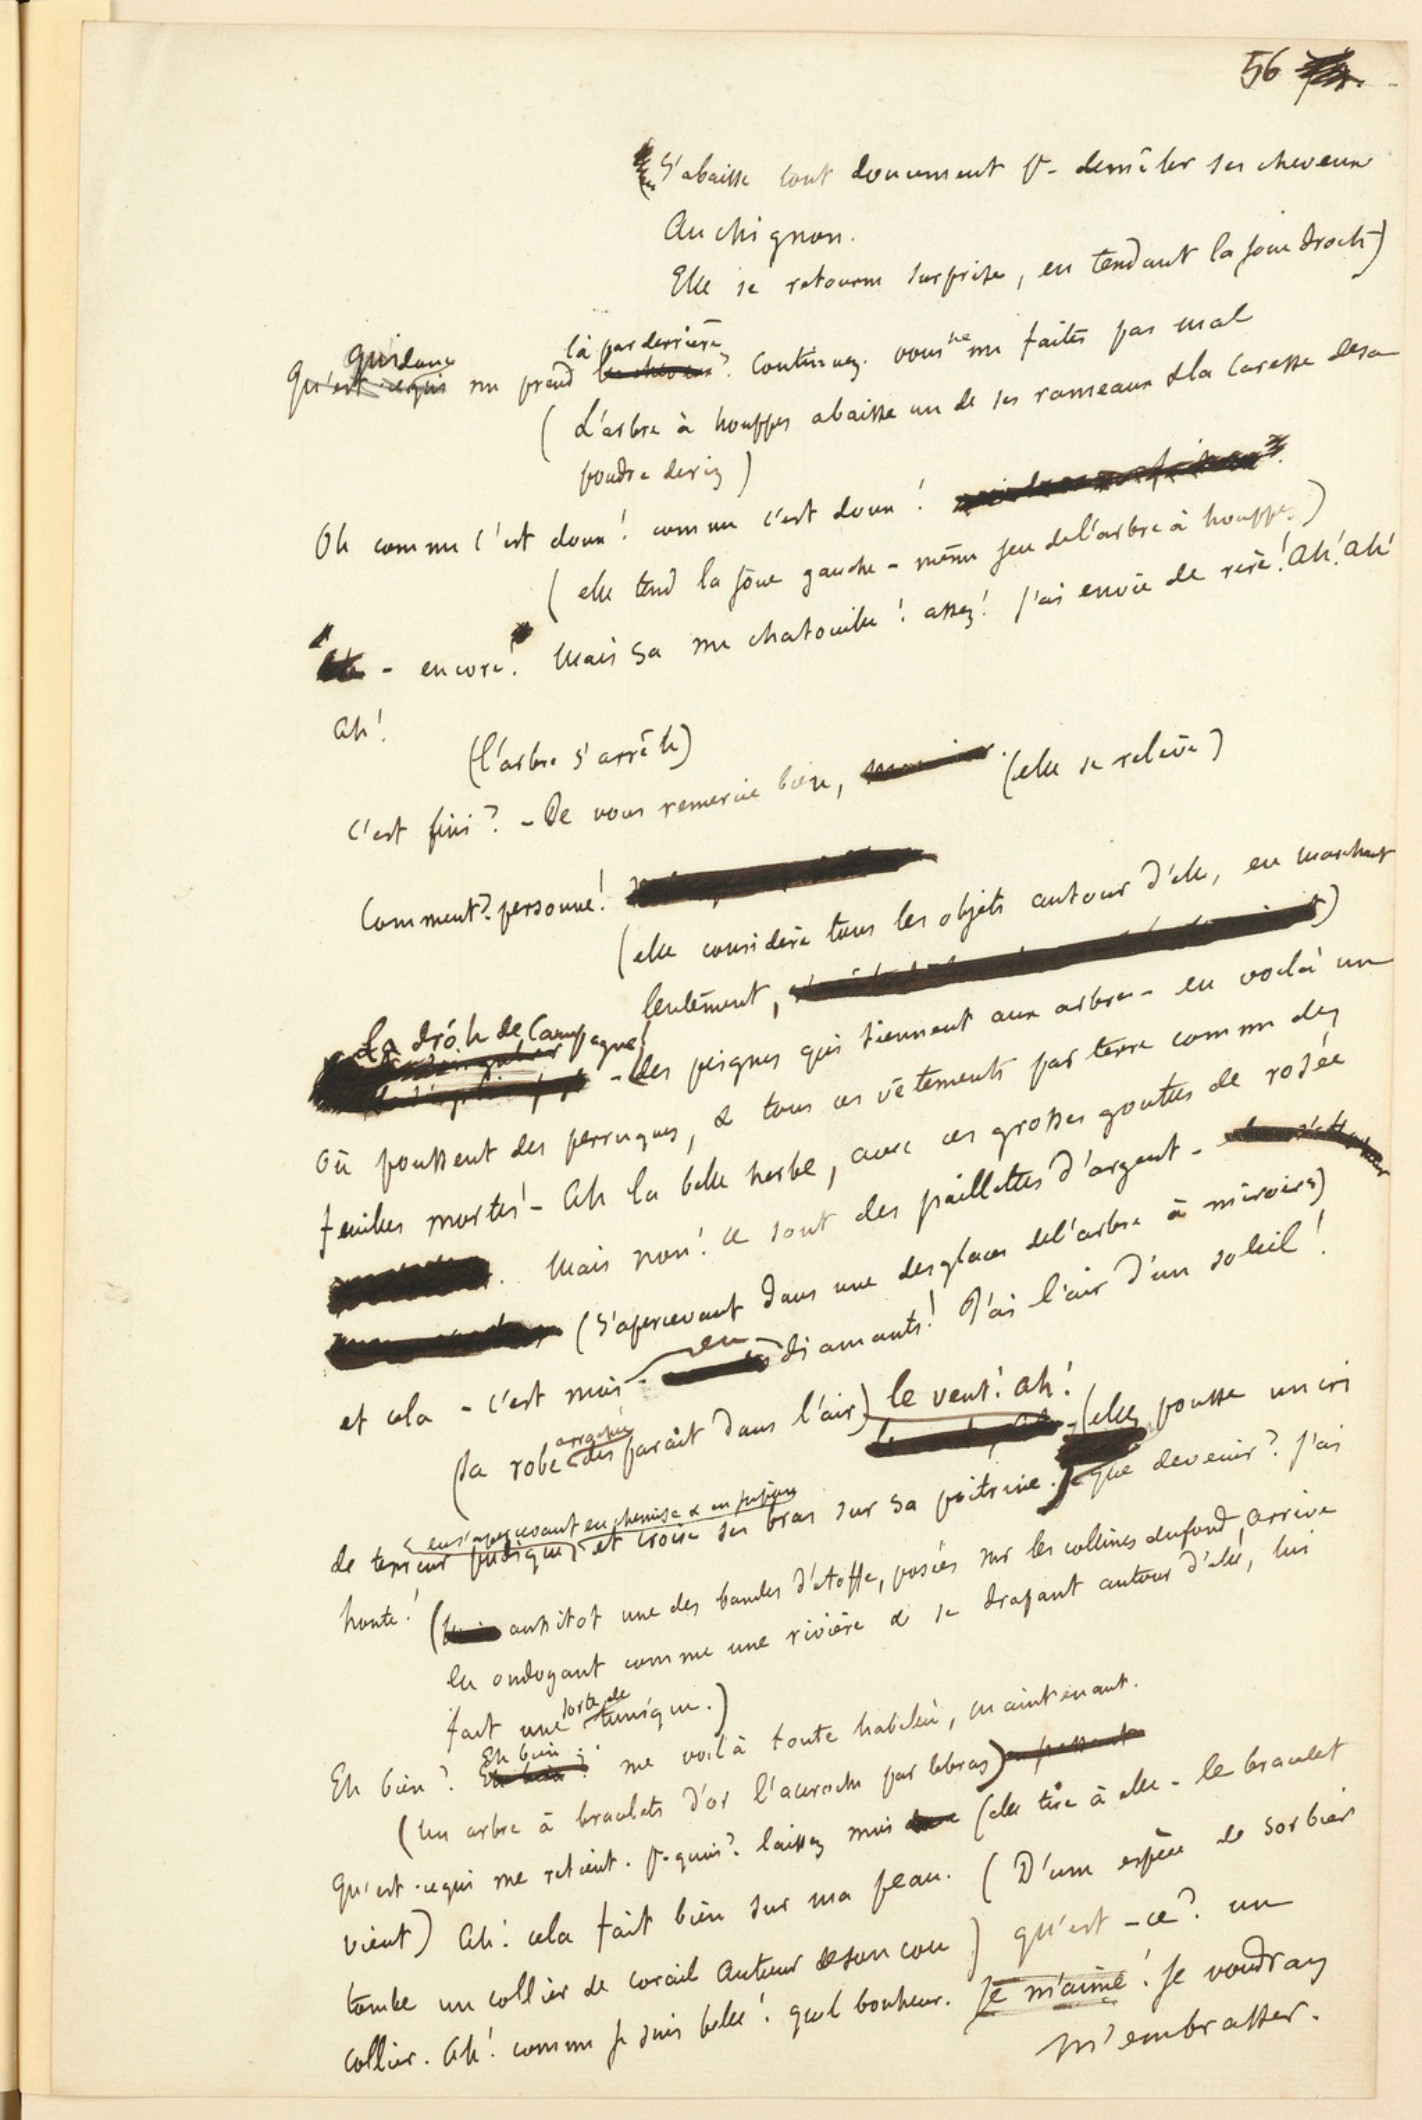 56
(S'abaisse tout doucement pr démêler ses cheveux
Au chignon.
Elle se retourne surprise, en tendant la joue droite)
qui donc là par derrière
Qu'est-ce qui me prend les cheveux? Continuez. vous ne me faites pas mal
(L'arbre à houppes abaisse un de ses rameaux & la caresse de sa
poudre de riz)
Oh comme c'est doux! comme c'est doux!
(elle tend la joue gauche - même jeu de l'arbre à houppes)
- encore! Mais ça me chatouille! assez! j'ai envie de rire! Ah! Ah!
Ah!
(l'arbre s'arrête)
C'est fini? - Je vous remercie bien, (elle se relève)
Comment? personne!
(elle considère tous les objets autour d'elle, en marchant
lentement,)
La drôle de Campagne!
- des peignes qui tiennent aux arbres - en voilà un
Où poussent des perruques, & tous ces vêtements par terre comme des
feuilles mortes! - Ah la belle herbe, avec ces grosses gouttes de rosée
. Mais non! ce sont des paillettes d'argent -
(S'apercevant dans une des glaces de l'arbre à miroirs)
et cela - c'est moi - en diamants! J'ai l'air d'un soleil!
(sa robe arrachée disparaît dans l'air) le vent! ah! - (elle pousse un cri
en s'apercevant en chemise & en jupon
de terreur pudique, et croise ses bras sur sa poitrine. que devenir? j'ai
honte! (aussitôt une des bandes d'étoffe, posées sur les collines du fond, arrive
en ondoyant comme une rivière & se drapant autour d'elle, lui
fait une sorte de tunique.)
Eh bien? Eh bien: me voilà toute habillée, maintenant.
(Un arbre à bracelets d'or l'accroche par le bras)
Qu'est-ce qui me retient. pr quoi? laissez moi (elle tire à elle - le bracelet
vient) Ah! cela fait bien sur ma peau. (D'une espèce de sorbier
tombe un collier de corail autour de son cou) qu'est-ce? un
collier. Ah! comme je suis belle! quel bonheur. Je m'aime! je voudrais
m'embrasser.